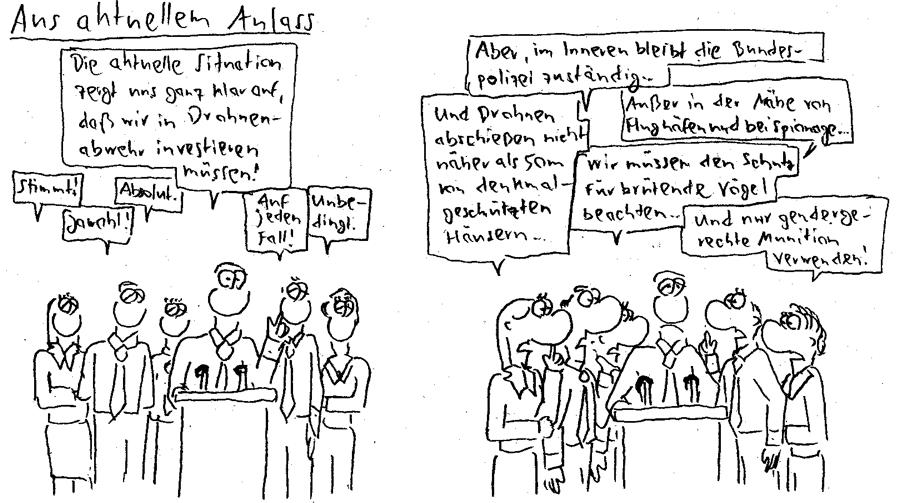 Aus aktuellem Anlass
Die aktuelle Situation
zeigt uns ganz klar auf,
daß wir in Drohnen-
abwehr investieren
müssen!
Stimmt!
Jawohl!
Absolut.
Auf
jeden
Fall!
Unbe-
dingt.
Aber, im Inneren bleibt die Bundes-
polizei zuständig...
Außer in der Nähe von
Flughäfen und bei Spionage...
Und Drohnen
abschießen nicht
näher als 50m
von denkmal-
geschützten
Häusern...
Wir müssen den Schutz
für brütende Vögel
beachten...
Und nur genderge-
rechte Munition
verwenden!